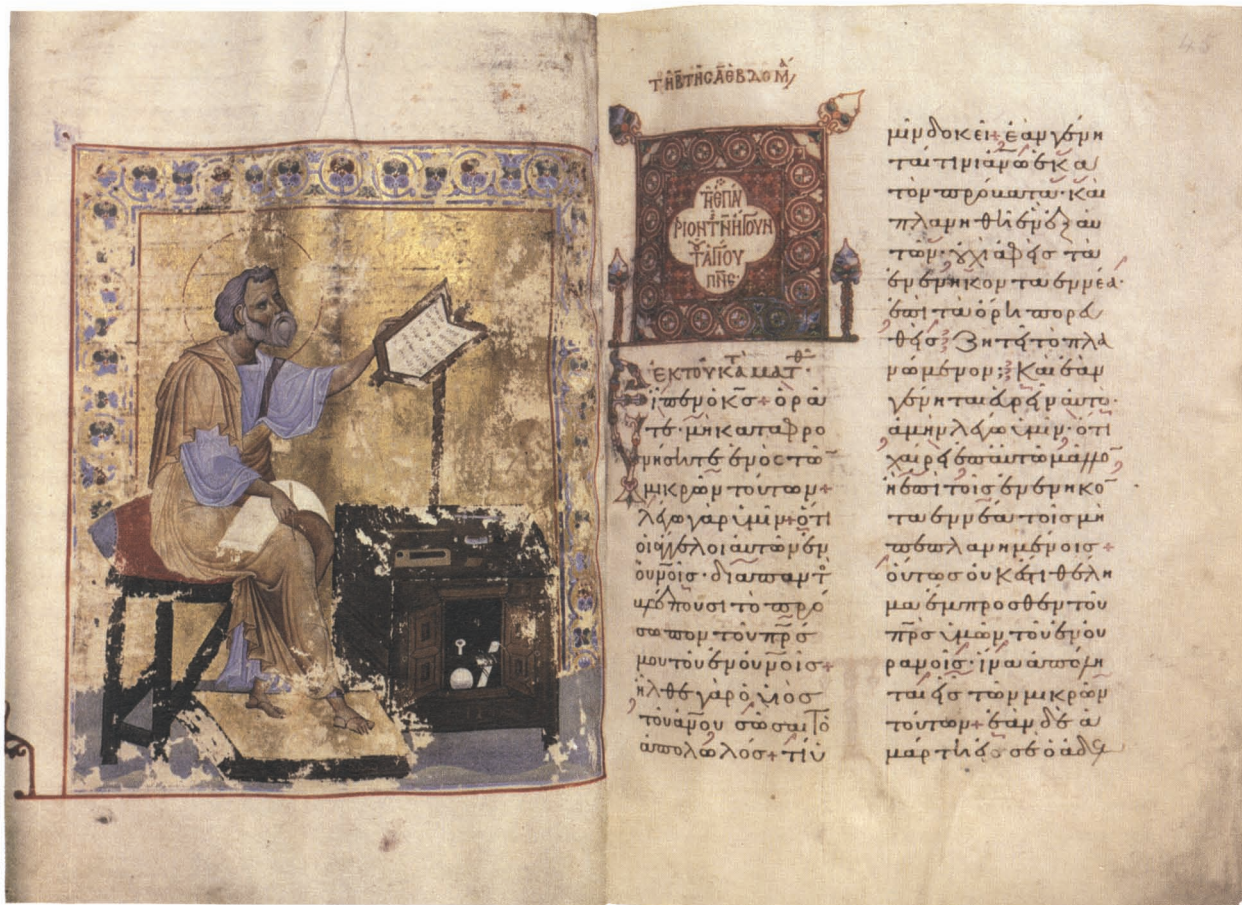 45
ΤΗ Β ΤΗC Α ΕΒΔΟΜΑ
ΤΗ ΕΠΑΥ
ΡΙΟΝ Τ Ν ΗΓΟΥΝ
Τ ΑΓΙΟΥ
ΠΝC·
ΕΚ ΤΟΥ ΚΑΤΑ ΜΑΤΘ·
Εἶπεν ὁ κς+ ὁρᾶ
τε· μὴ καταφρο
νήσητε ἑνὸς τῶ
μικρῶν τούτων+
λέγω γὰρ ὑμῖν+ ὅτι
οἱ ἄγγελοι αὐτῶν ἐν
οὐνοῖς· διαπαντ
βλέπουσι τὸ πρό
σωπον τοῦ πρς
μου τοῦ ἐν οὐνοῖς+
ἦλθε γὰρ ὁ υἱὸς
τοῦ ἀνου σῶσαι τὸ
ἀπολωλός+ τί ὑ
μῖν δοκεῖ+ ἐὰν γένη
ταί τινι ἀνω ἑκα
τὸν πρόβατα· καὶ
πλανηθῆ ἓν ἐξ αὐ
τῶν· οὐχὶ ἀφεὶς τὰ
ἐνενήκοντα ἐννέα·
ἐπὶ τὰ ὄρη πορευ
θεὶς ζητεῖ τὸ πλα
νώμενον; Καὶ ἐὰν
γένηται εὑρεῖν αὐτό·
ἀμὴν λέγω ὑμῖν· ὅτι
χαίρει ἐπ αὐτῶ μᾶλλο
ἢ ἐπὶ τοῖς ἐνενηκο
τα ἐννέα τοῖς μὴ
πεπλανημένοις+
οὕτως οὐκ ἔστι θέλη
μα ἔμπροσθεν τοῦ
πρς ὑμῶν τοῦ ἐν οὐ
ρανοῖς· ἵνα ἀπόλη
ται εἷς τῶν μικρῶν
τούτων+ ἐὰν δὲ ἁ
μαρτήση εἰς σὲ ὁ ἀδε